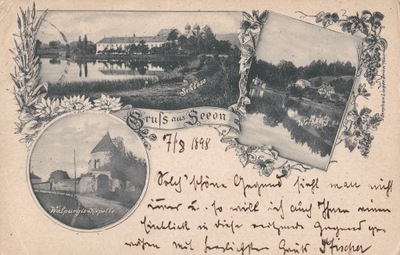 Seeon
Gruß aus Seeon
7/8 1898
Walpurgis-Kapelle
Solch' schöne Gegend sieht man nicht
immer u. so will ich auch Ihnen einen
Einblick in diese reizende Gegend ge-
währen mit herzlichstem Gruß Fischer